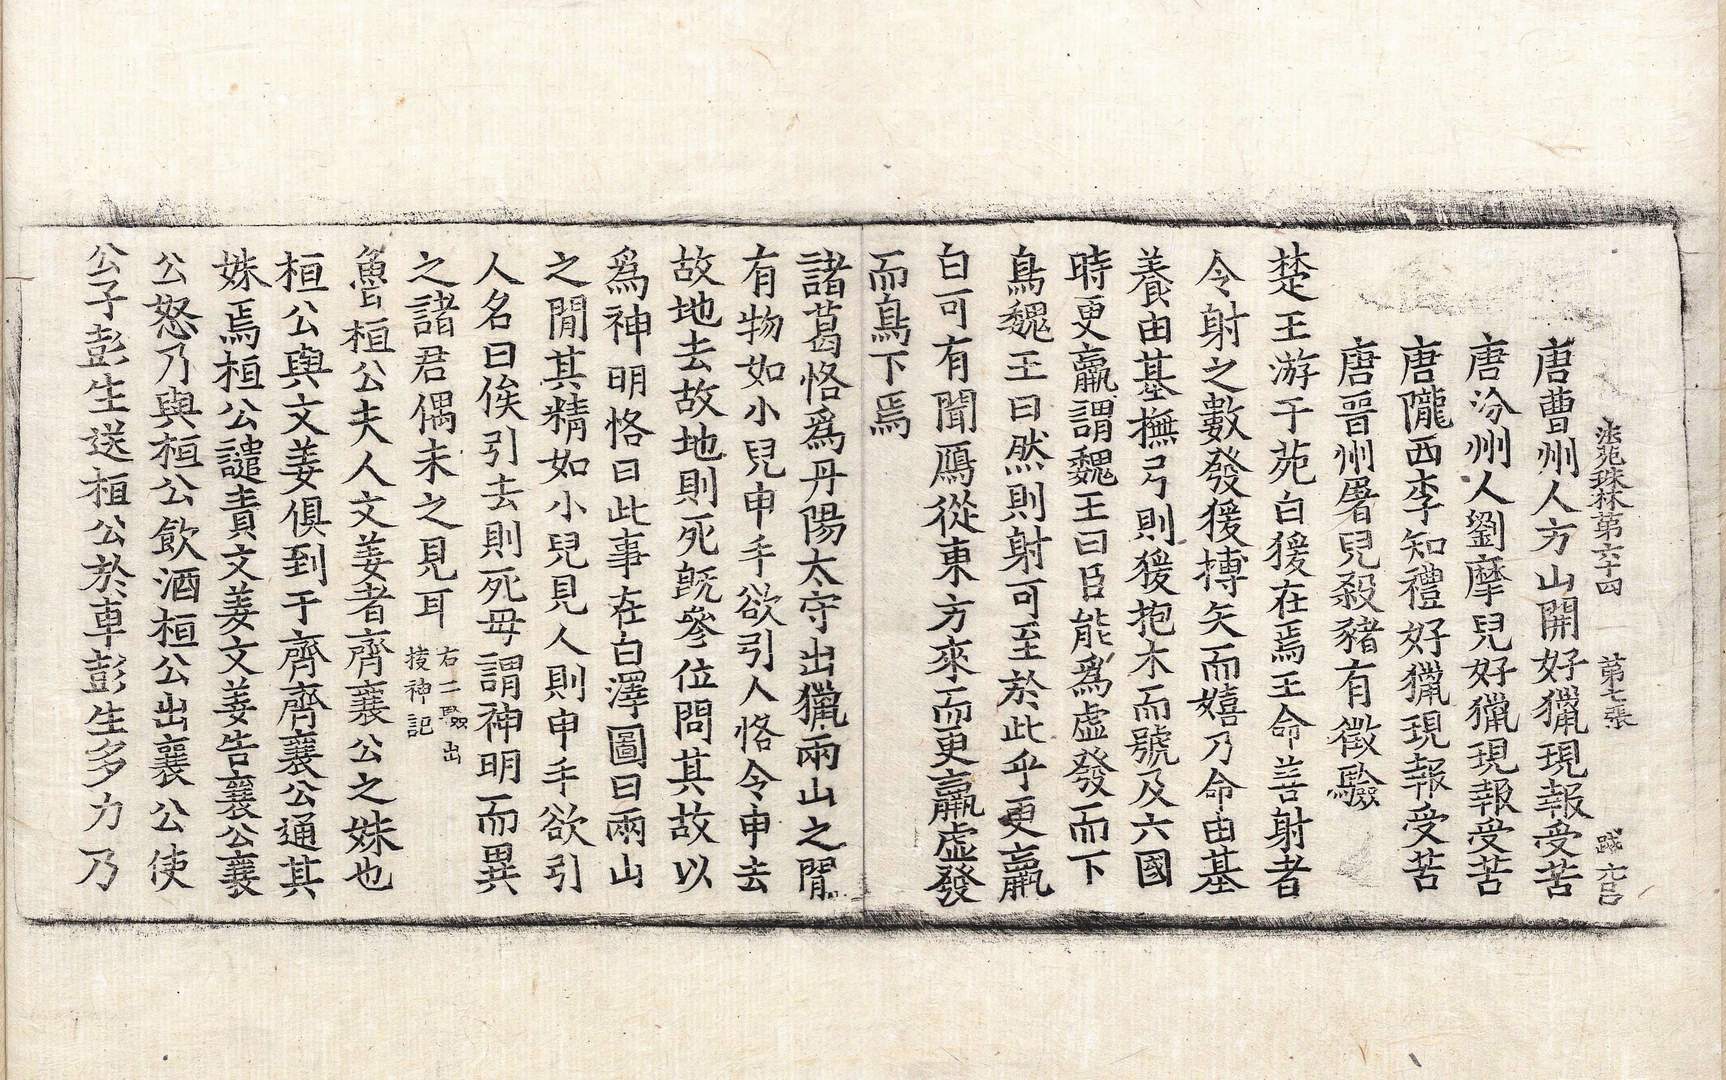 法苑珠林第六十四　第七張
唐曹州人方山開好獵現報受苦
唐汾州人劉摩兒好獵現報受苦
唐隴西李知禮好獵現報受苦
唐晉州屠兒殺豬有徵驗
楚王游于苑白猨在焉王命善射者
令射之數發猨搏矢而嬉乃命由基
養由基撫弓則猨抱木而號及六國
時更羸謂魏王曰臣能爲虛發而下
鳥魏王曰然則射可至於此乎更羸
白可有聞鴈從東方來而更羸虛發
而鳥下焉
諸葛恪爲丹陽太守出獵兩山之閒
有物如小兒申手欲引人恪令申去
故地去故地則死旣參位問其故以
爲神明恪曰此事在白澤圖曰兩山
之閒其精如小兒見人則申手欲引
人名曰俟引去則死毋謂神明而異
之諸君偶未之見耳
右二驗出
神記
魯桓公夫人文姜者齊襄公之妹也
桓公與文姜俱到于齊齊襄公通其
妹焉桓公譴責文姜文姜告襄公襄
公怒乃與桓公飲酒桓公出襄公使
公子彭生送桓公於車彭生多力乃